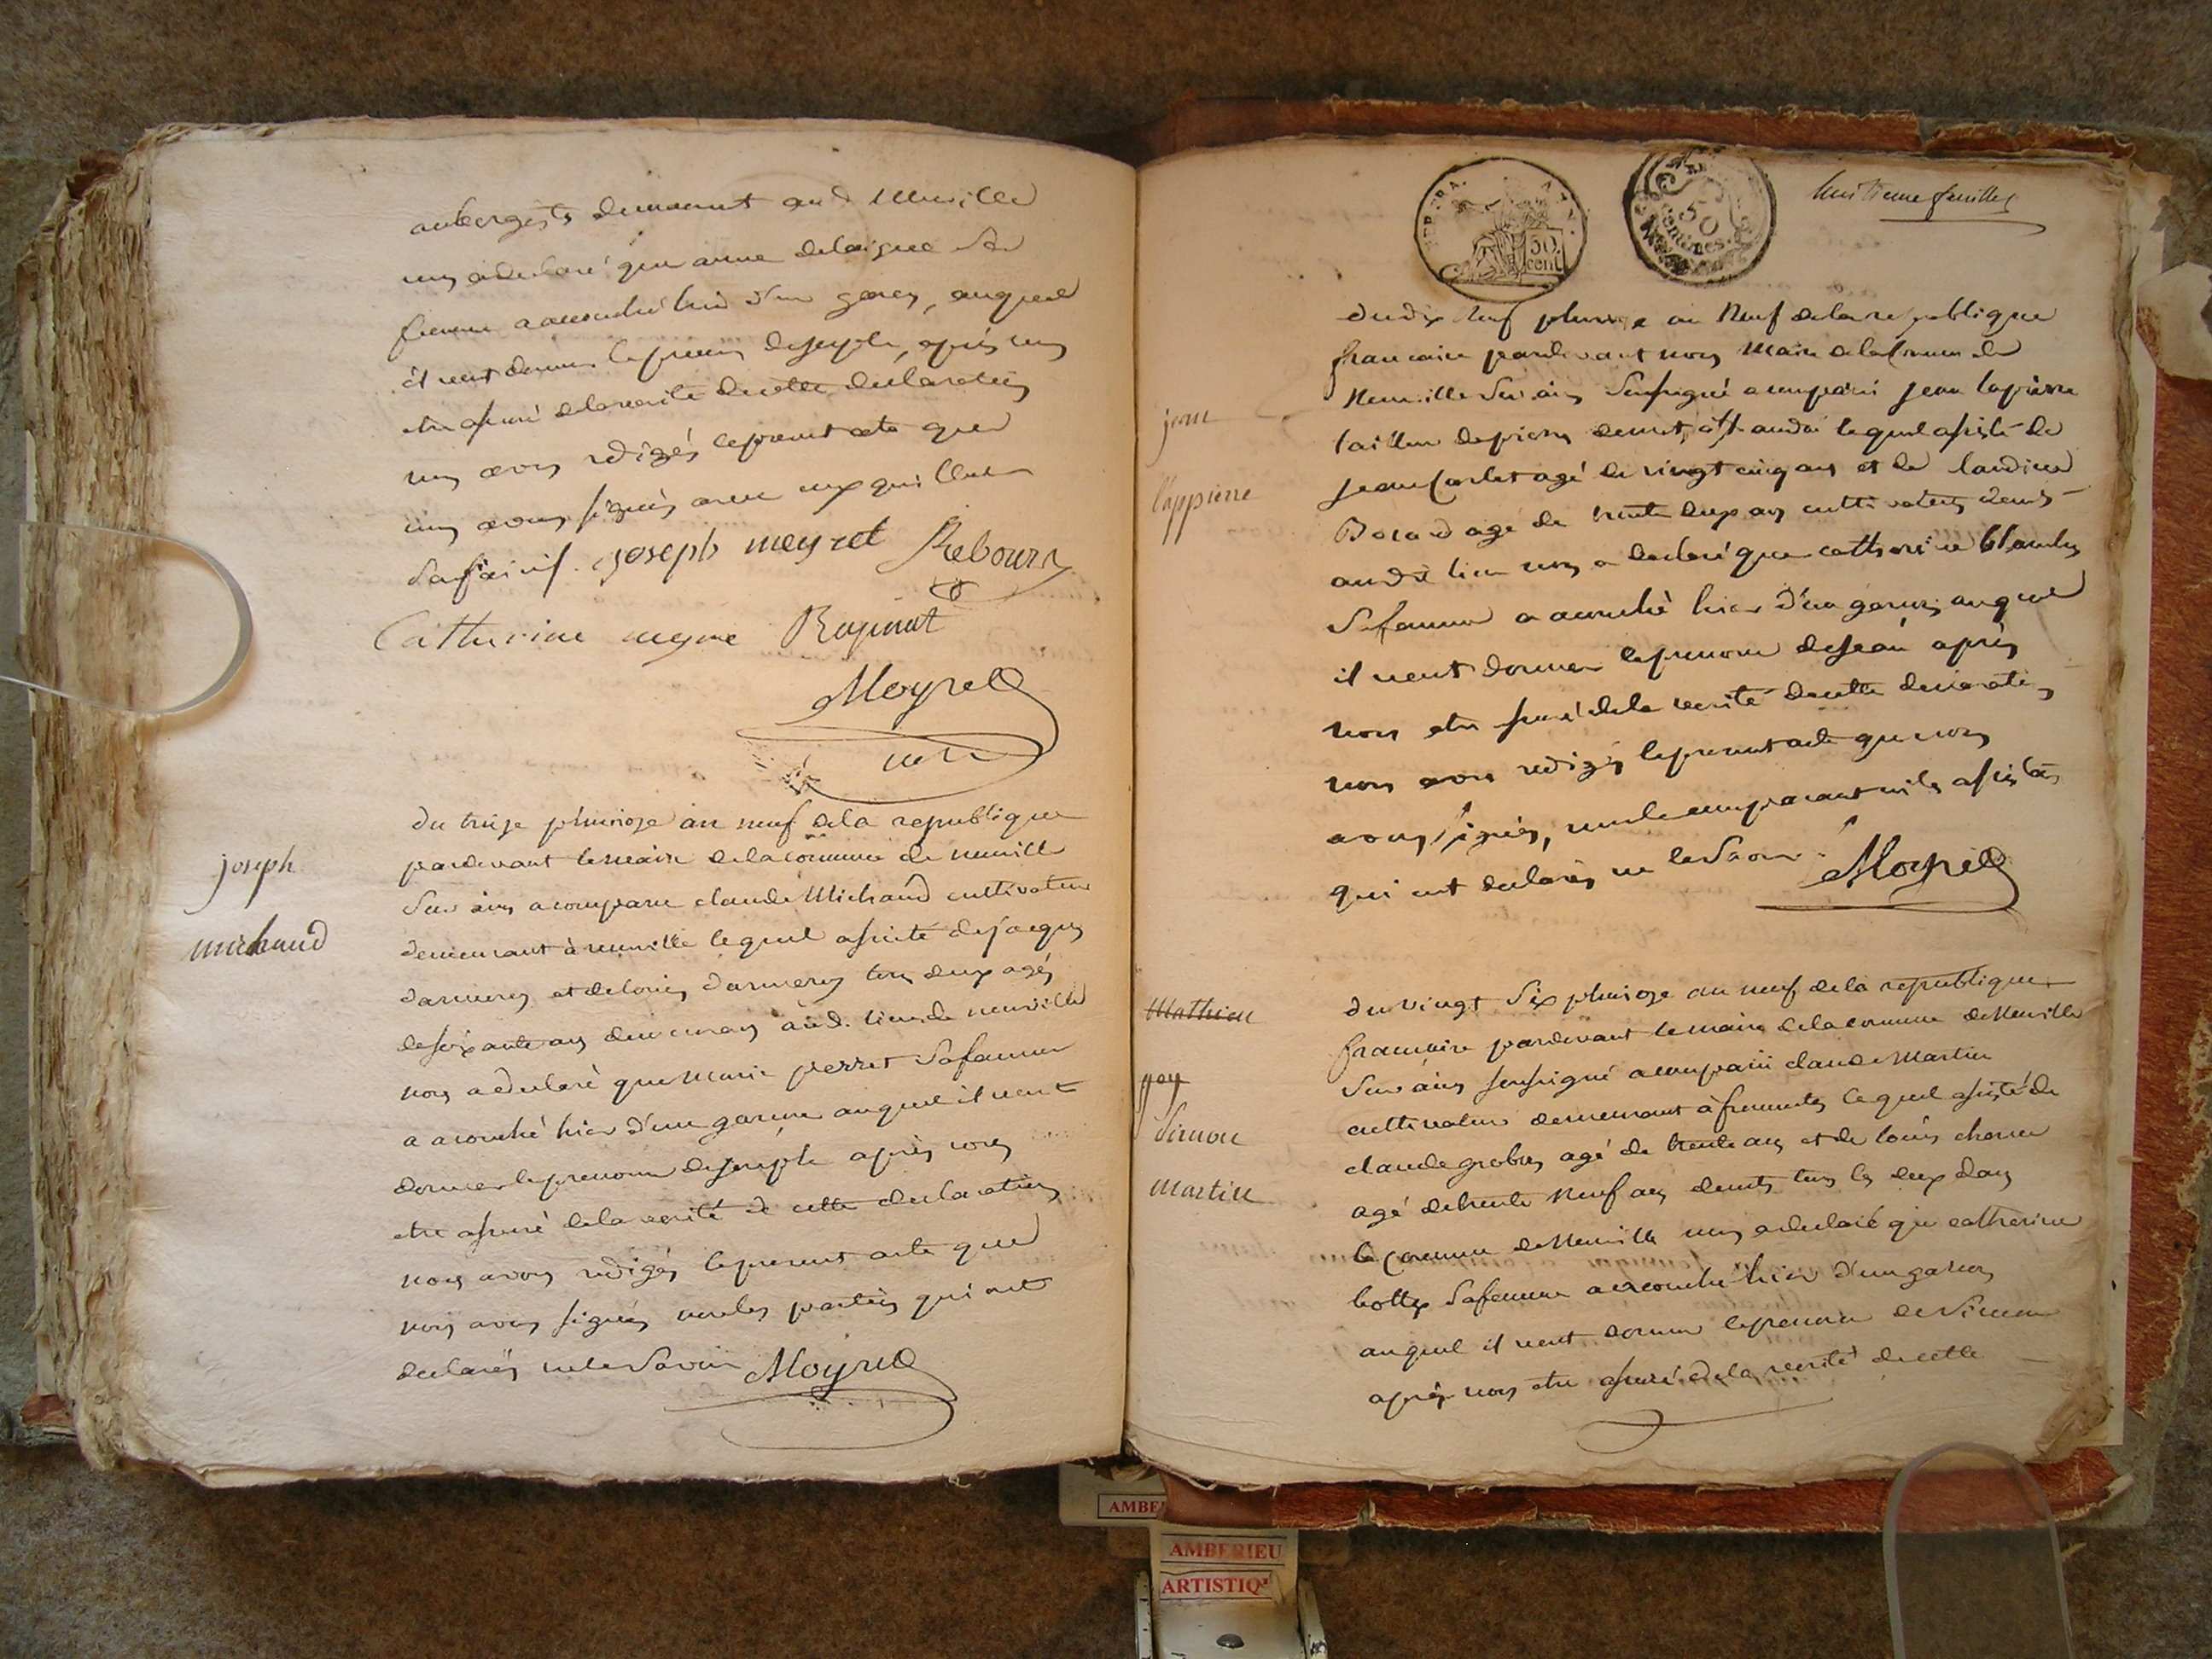 aubergiste demeurant aud neuville
nous a declaré que anne delaigue sa
femme a accouché hier d'un garçon, auquel
il veut donner le prenom de joseph, après nous
etre assuré de la verité de cette declaration
nous avons redigés le present acte que
nous avons signés avec ceux qui l'ont
sa fait. joseph meyret Rebours
Catherine Raginat
Moyret
du treize pluviose an neuf dela republique
joseph
pardevant le maire de la commune de neuville
sur ain a comparu claude Michaud cultivateur
michaud
demeurant à neuville lequel assisté de jacques
et de louis tous deux agés
de soixante ans demeurans aud. lieu de neuville
nous a declaré que Marie perret sa femme
a accouché hier d'un garcon auquel il veut
donner le prenom de joseph après nous
etre assuré de la verité de cette declaration
nous avons redigés le present acte que
nous avons signés non les parties qui ont
declarés ne le savoir Moyret
huitieme feuillet
50 cent
50 centimes
du dix neuf pluviose an Neuf de la republique
francaise pardevant nous Maire de la Commune de
Neuville sur ain soussigné a comparu jean lapierre
jean
tailleur de pierres demt audit lequel assisté de
jean Carlet agé de vingt cinq ans et de claudine
lappierre
agé de trente deux ans cultivateurs demts
audit lieu nous a declaré que catherine
sa femme a accouché hier d'un garcon auquel
il veut donner le prenom de jean après
nous etre assuré de la verité de cette declaration
nous avons redigés le present acte que nous
avons signés, non le comparant ni les assistés
qui ont declarés ne le savoir. Moyret
du vingt six pluviose an neuf de la republique
Mathieu
francaise pardevant le maire de la commune de Neuville
sur ain soussigné a comparu claude Martin
goy
cultivateur demeurant à fromentes lequel assisté de
Simon
claude grobon agé de trente ans et de louis
Martin
agé de trente Neuf ans demts tous les deux dans
la Commune de Neuville nous a declaré que catherine
bottex sa femme a accouché hier d'un garcon
auquel il veut donner le prenom de Simon
après nous etre assuré de la verité de cette
AMBERIEU
ARTISTIQ